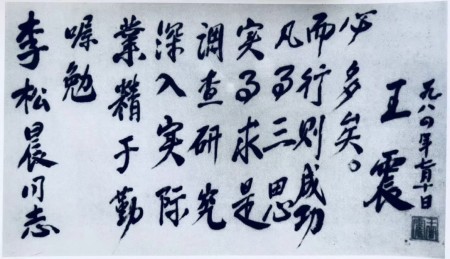 李松晨同志
嘱勉
業精于勤
深入实际
调查研究
实事求是
凡事三思
而行则成功
必多矣。
王震
一九八四年